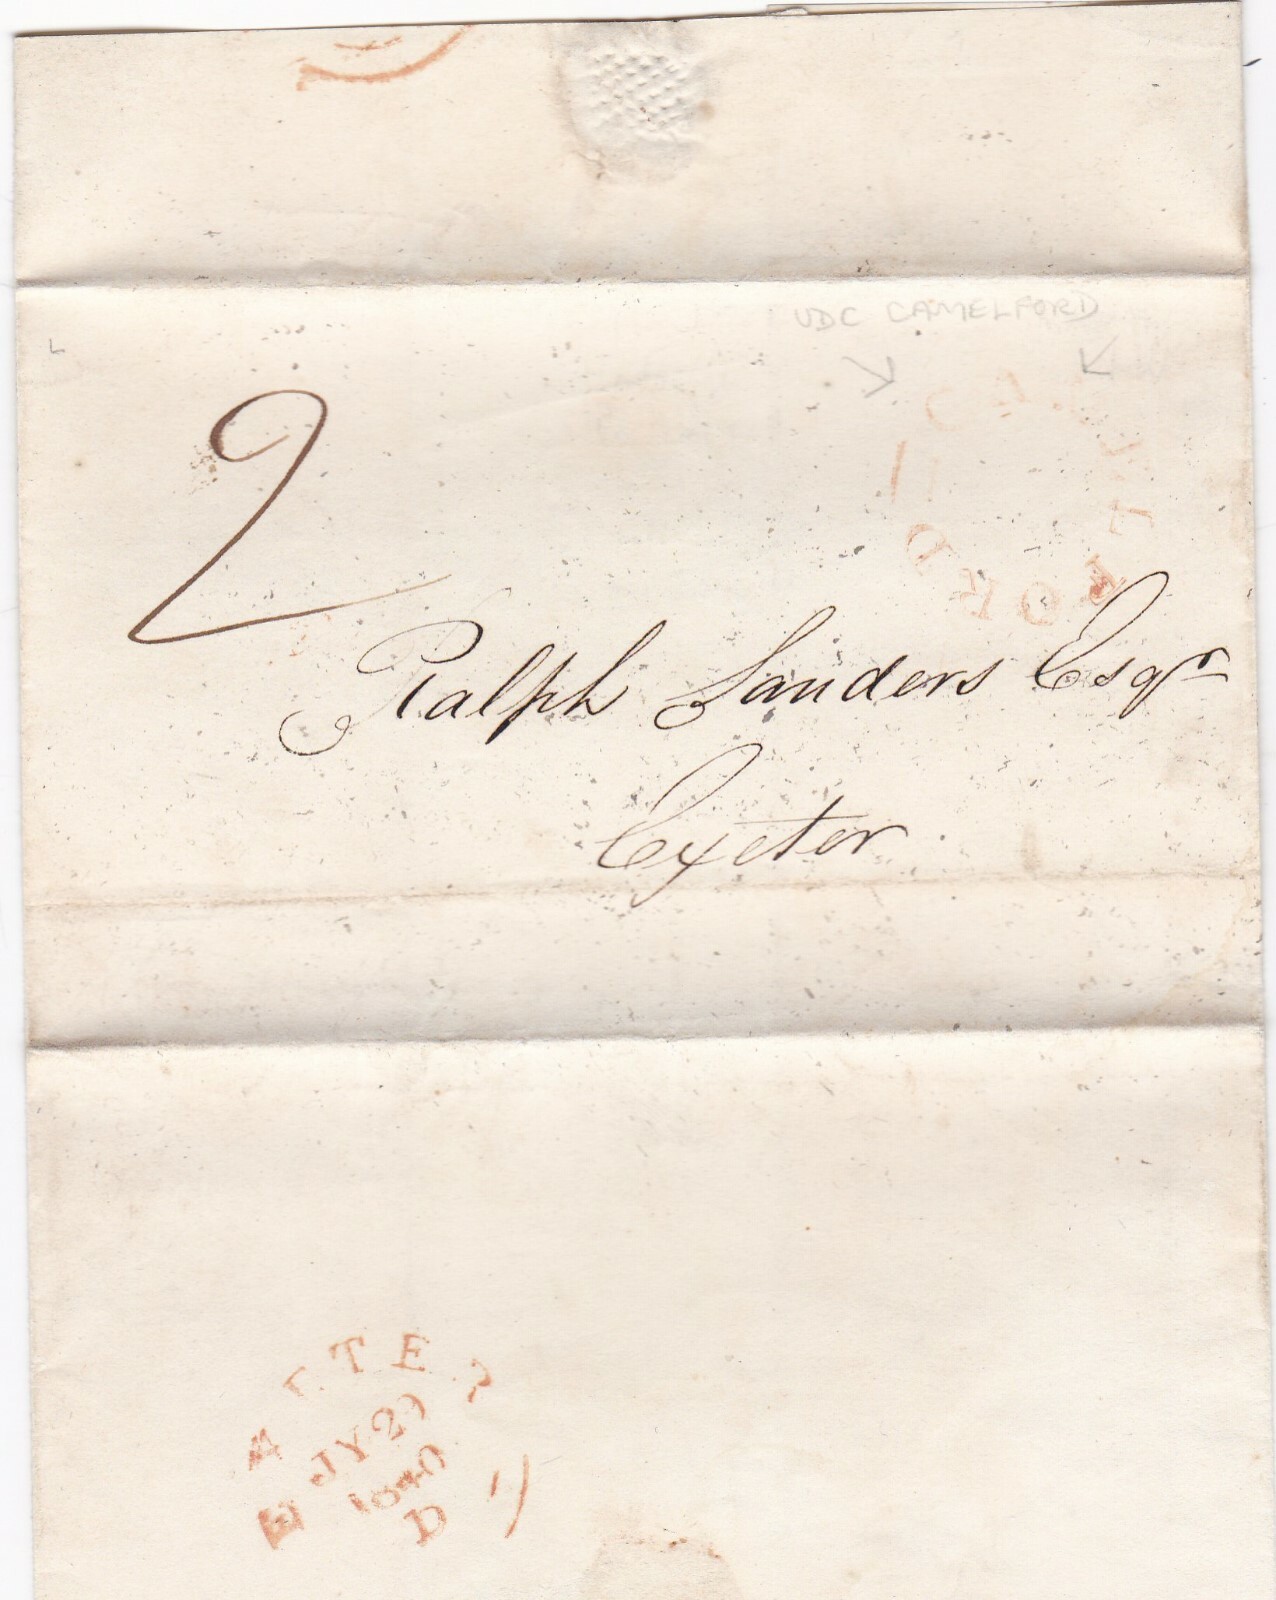 UDC CAMELFORD
2
Ralph Sanders Esqr
Exeter
JY 29
1840
D